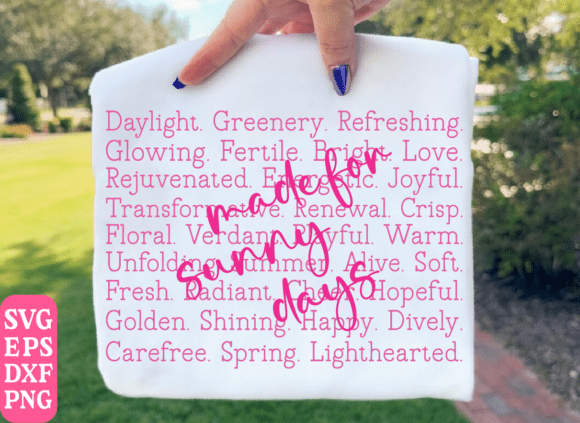 Daylight. Greenery. Refreshing.
Glowing. Fertile. Bright. Love.
Rejuvenated. Energetic. Joyful.
Transformative. Renewal. Crisp.
Floral. Verdant. Playful. Warm.
Unfolding. Summer. Alive. Soft.
Fresh. Radiant. Cheer. Hopeful.
Golden. Shining. Happy. Dively.
Carefree. Spring. Lighthearted.
made for
sunny
days
SVG
EPS
DXF
PNG